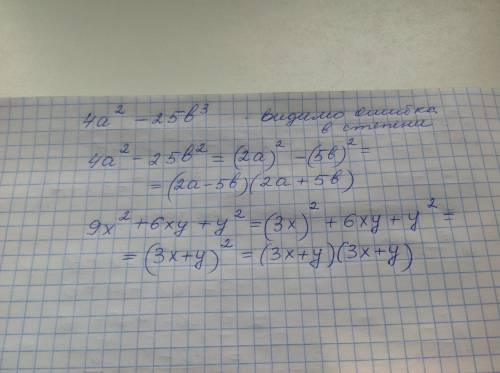 4a² - 25в³ - видимо ошибка
в степени
4a² - 25в² = (2a)² - (5в)² =
= (2a - 5в)(2a + 5в)
9x² + 6xy + y² = (3x)² + 6xy + y² =
= (3x+y)² = (3x+y)(3x+y)